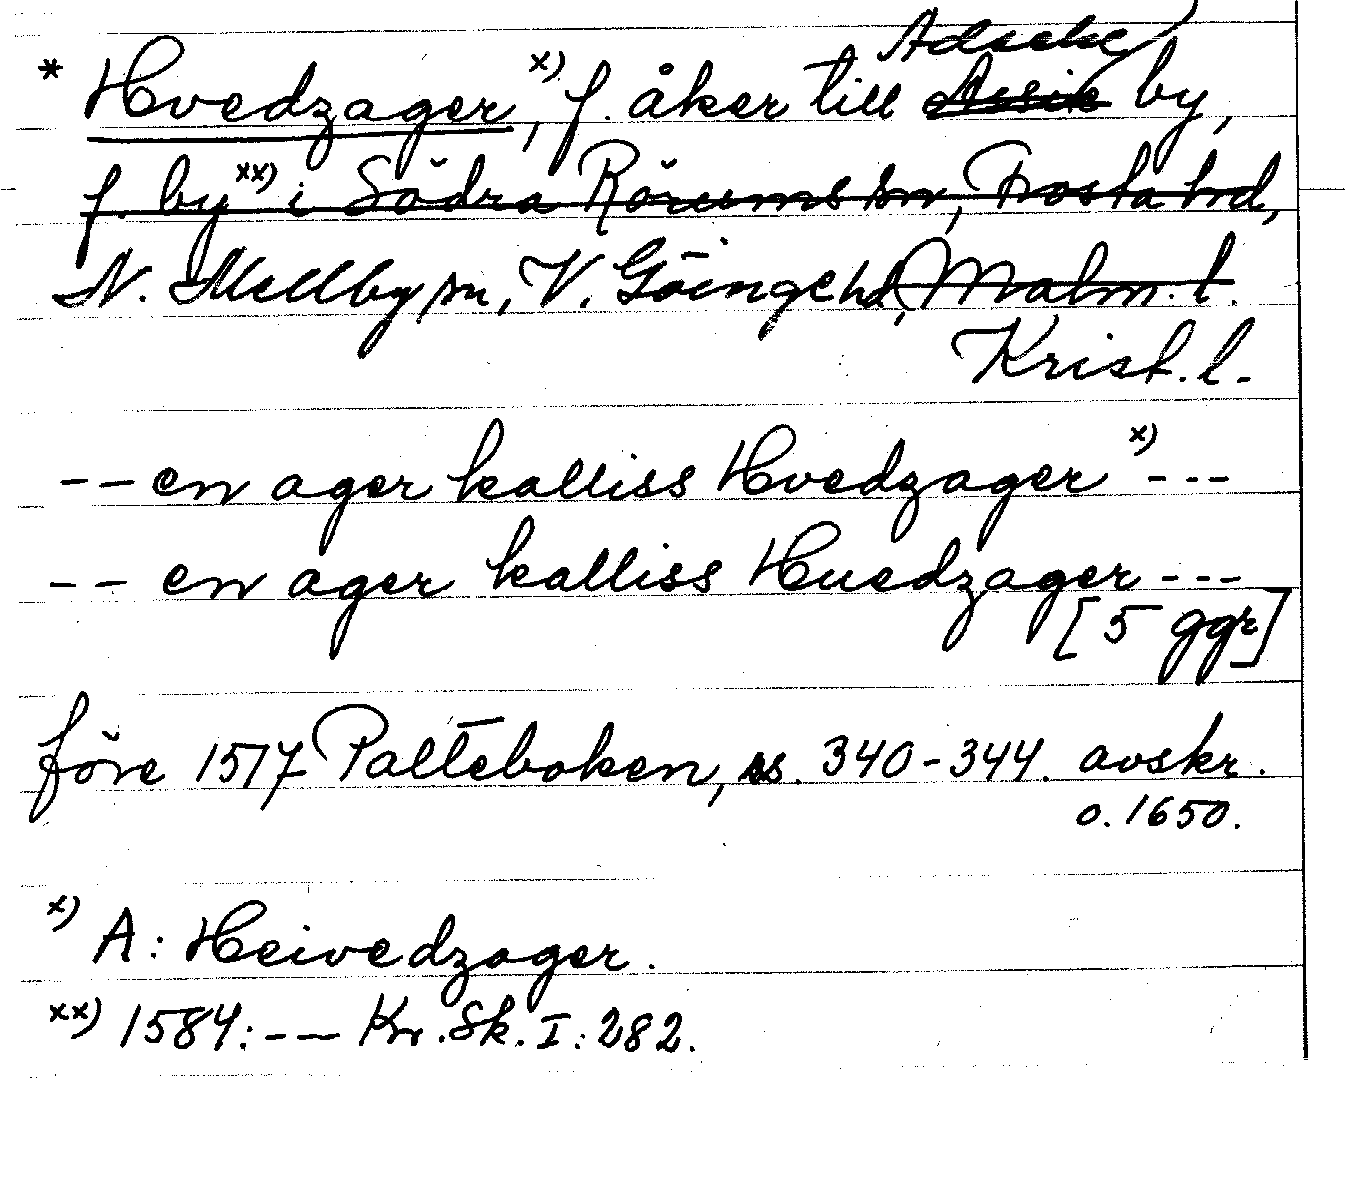 * Hvedzager,x) f. åker till Adseke by,
f. by xx) i Södra Rörums sn, Frosta hd,
N. Mellby sn, V. Göinge hd, Malm. l.
Krist. l.
-- en ager kalliss Hvedzager x) ---
-- en ager kalliss Huedzager ---
[5 ggr]
före 1517 Palteboken, ss. 340-344. avskr.
o. 1650.
x) A: Heivedzager.
xx) 1584: -- Kr. Sk. I: 282.